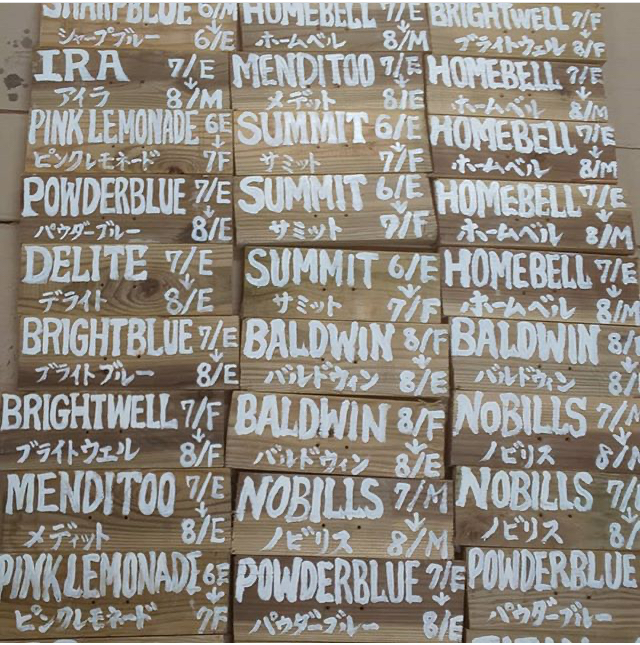 SHARPBLUE 6/M
シャープブルー 6/E
IRA 7/E
アイラ 8/M
PINK LEMONADE 6E
ピンクレモネード 7F
POWDERBLUE 7/E
パウダーブルー 8/E
DELITE 7/E
デライト 8/E
BRIGHTBLUE 7/E
ブライトブルー 8/E
BRIGHTWELL 7/F
ブライトウェル 8/F
MENDITOO 7/E
メディット 8/E
PINK LEMONADE 6E
ピンクレモネード 7F
HOMEBELL 7/E
ホームベル 8/M
MENDITOO 7/E
メデット 8/E
SUMMIT 6/E
サミット 7/F
SUMMIT 6/E
サミット 7/F
SUMMIT 6/E
サミット 7/F
BALDWIN 8/F
バルドウィン 8/E
BALDWIN 8/F
バルドウィン 8/E
NOBILLS 7/M
ノビリス 8/M
POWDERBLUE 7/E
パウダーブルー 8/E
BRIGHTWELL 7/F
ブライトウェル 8/F
HOMEBELL 7/E
ホームベル 8/M
HOMEBELL 7/E
ホームベル 8/M
HOMEBELL 7/E
ホームベル 8/M
HOMEBELL 7/E
ホームベル 8/M
BALDWIN 8/
バルドウィン 8/
NOBILLS 7/
ノビリス 8/
NOBILLS 7/
ノビリス 8/
POWDERBLUE
パウダーブルー